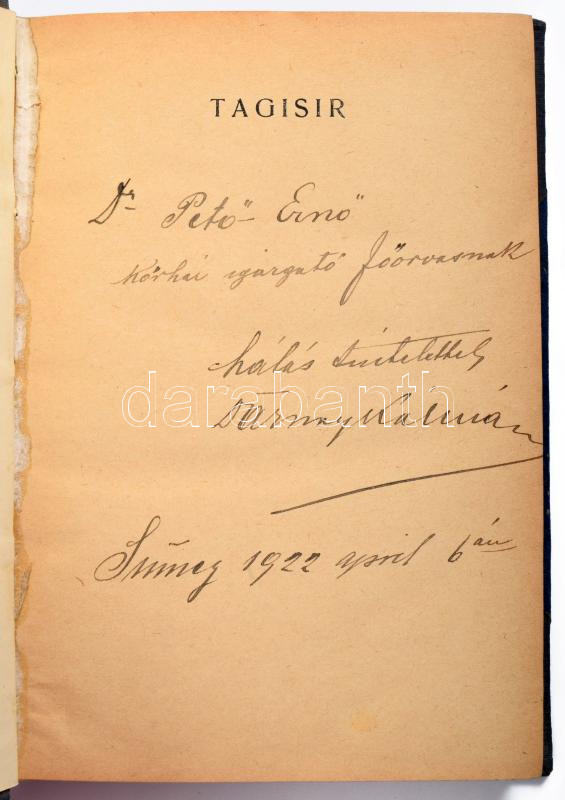 TAGISIR
Dr Pető Ernő
kórházi igazgató főorvosnak
hálás tisztelettel
darabanth
Darnay Kálmán
Sümeg 1922 april 6 án